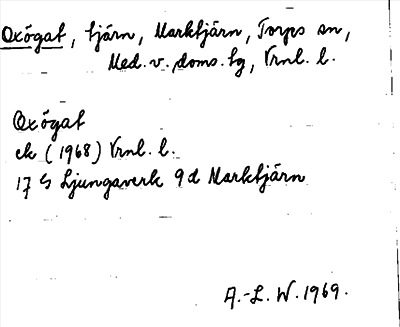 Oxögat, tjärn, Marktjärn, Torps sn,
Med. v. doms. tg, Vrnl. l.
Oxögat
ek (1968) Vrnl. l.
17 G Ljungaverk 9d Marktjärn
A.-L. W. 1969.